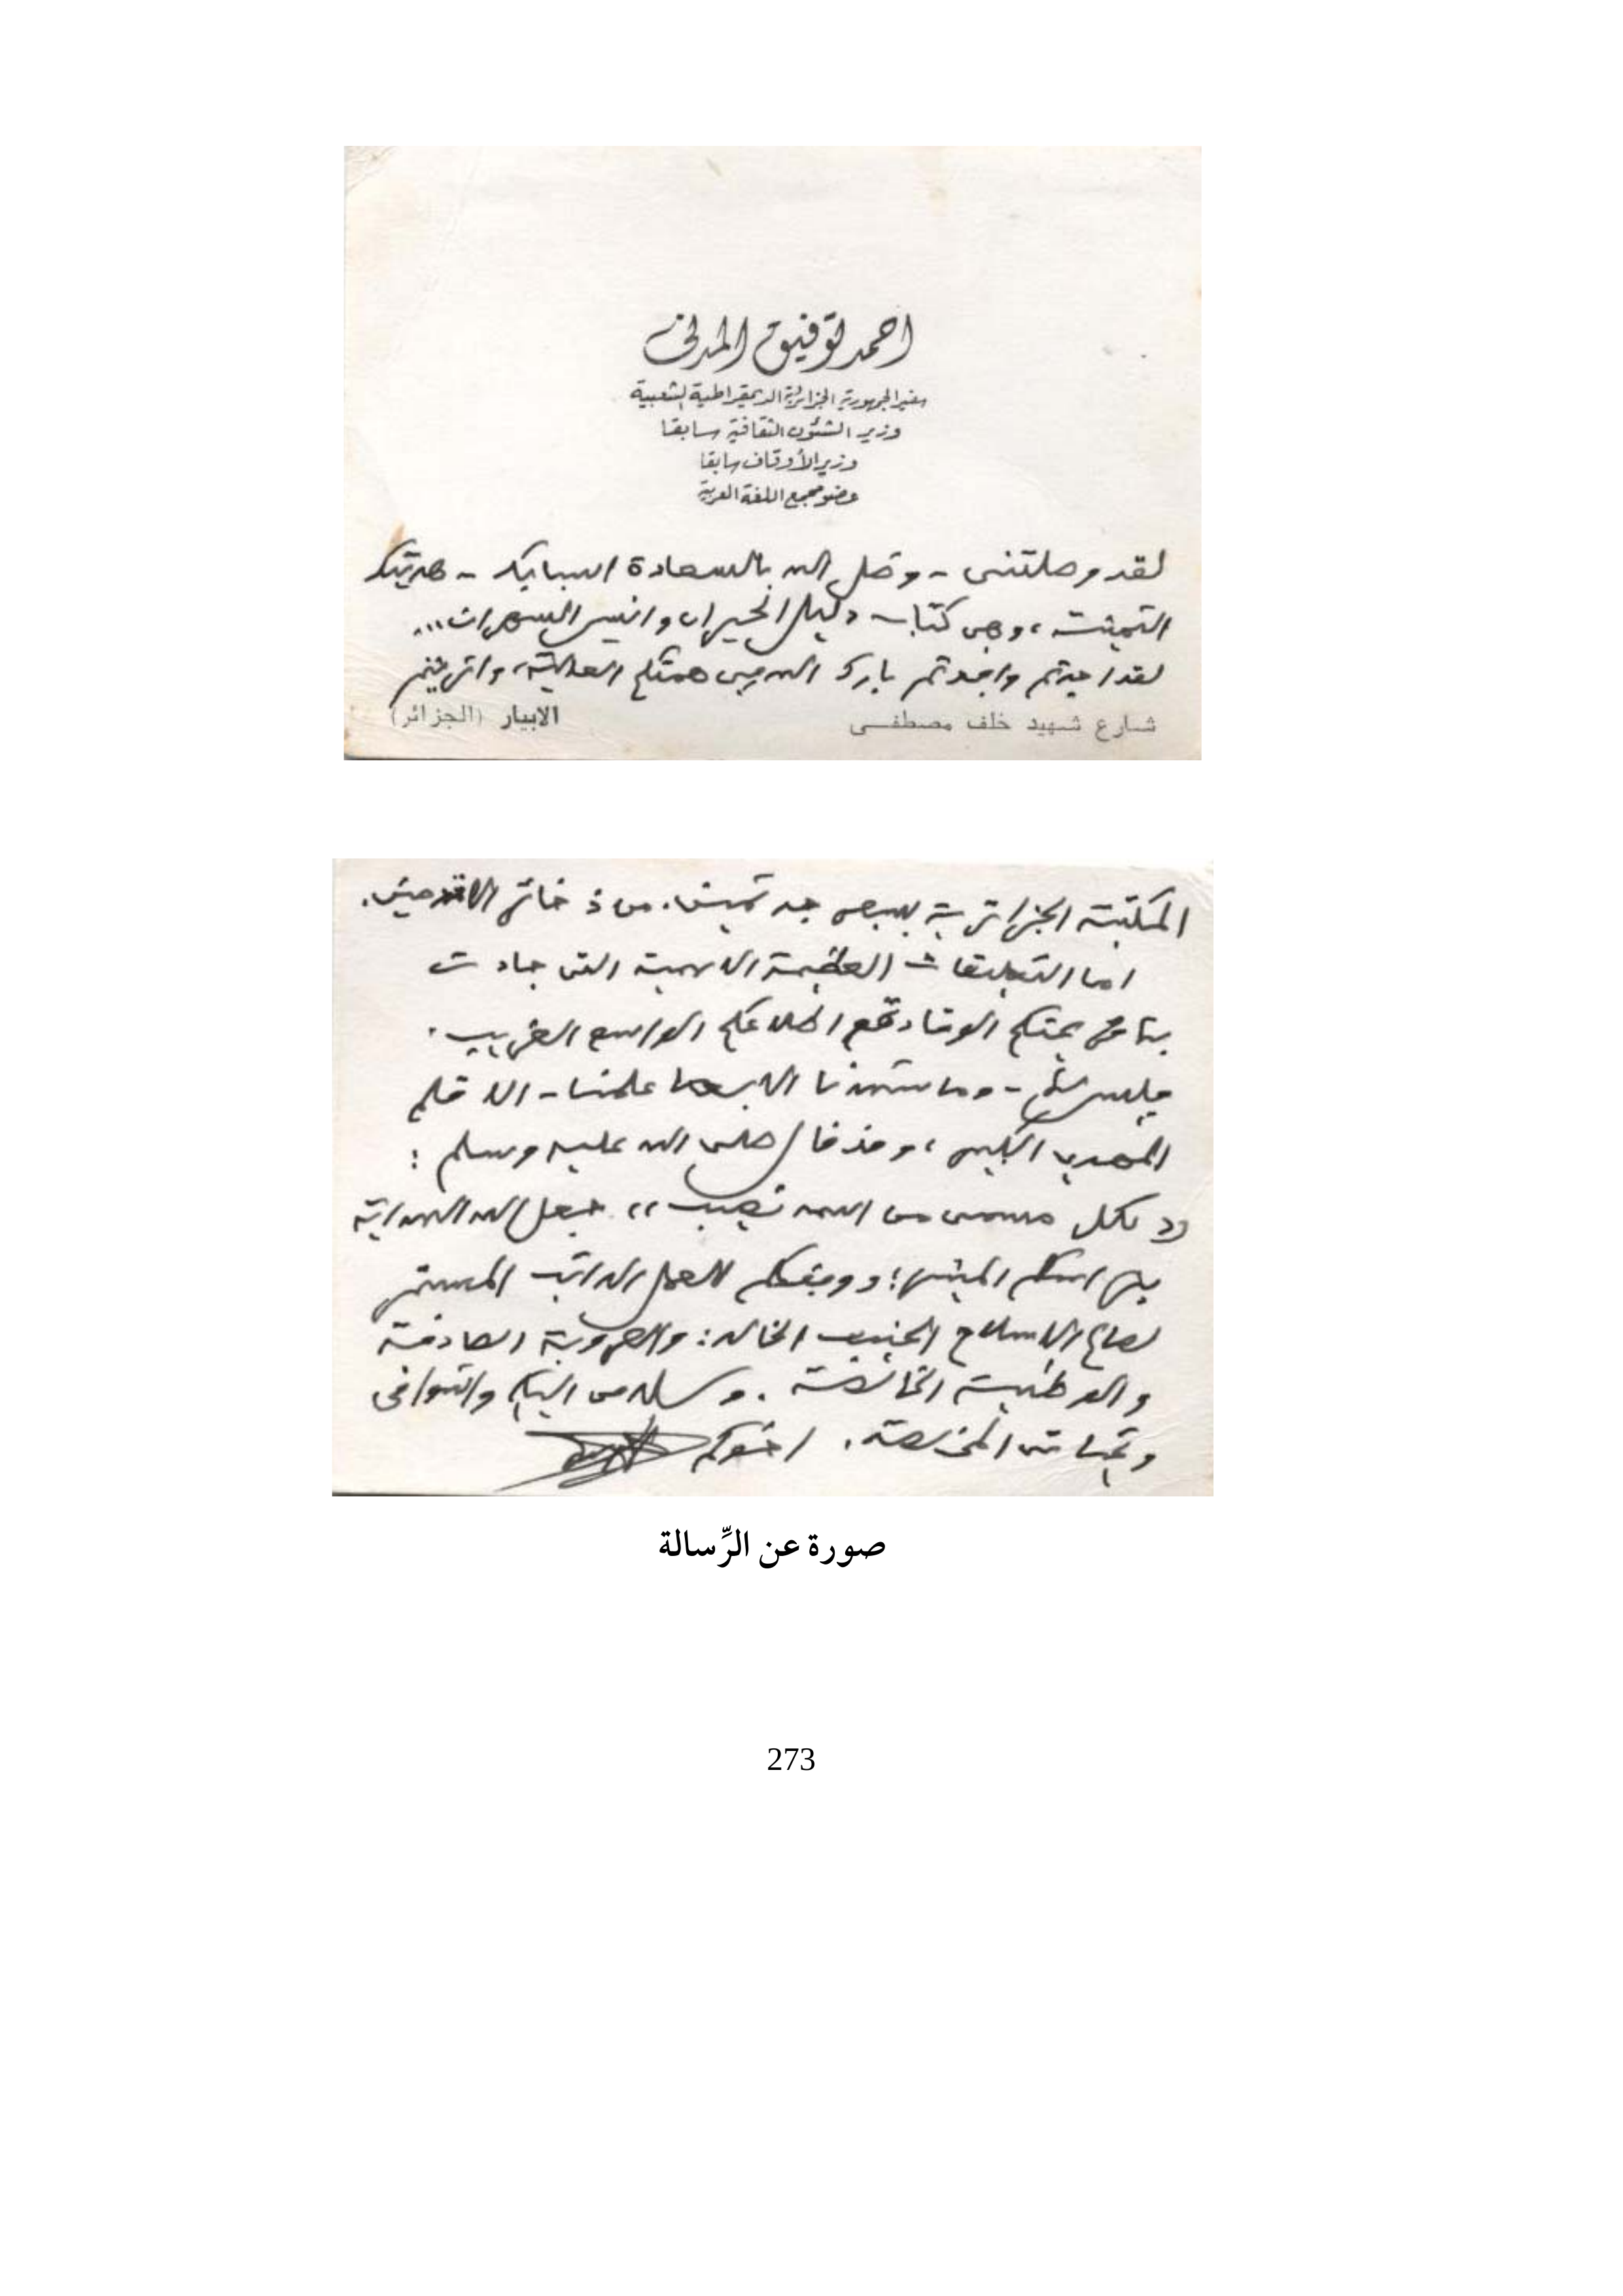 احمد توفيق المدني
سفير الجمهورية الجزائرية الديمقراطية الشعبية
وزير الشئون الثقافية سابقا
وزير الأوقاف سابقا
عضو مجمع اللغة العربية
لقد وصلتنى - وصل الله بالسعادة اسبابكم - هديتكم
الثمينة، وهى كتاب دليل الحيران وانيس السهران...
لقد اجدتم وافدتم بارك الله فى همتكم العالية، واثريتم
شارع شهيد خلف مصطفى الابيار (الجزائر)
المكتبة الجزائرية بسفر جد ثمين. من ذخائر الاقدمين.
اما التعليقات العظيمة الاهمية التى جادت
بها قريحتكم الوقادة مع اطلاعكم الواسع الغريب.
فليس لها - وما شهدنا الا بما علمنا - الا قلم
المهدى الكبير، وقد قال صلى الله عليه وسلم :
(( لكل مسمى من اسمه نصيب )) جعل الله الهداية
فى اسمكم المبشر؛ ووفقكم للعمل الدائب المستمر
لصالح الاسلام الحنيف الخالد: والعروبة الصادقة
والوطنية الخالصة. وسلام من اليكم والتوافى
وتحياتى المخلصة. اخوكم
صورة عن الرِّسالة
273